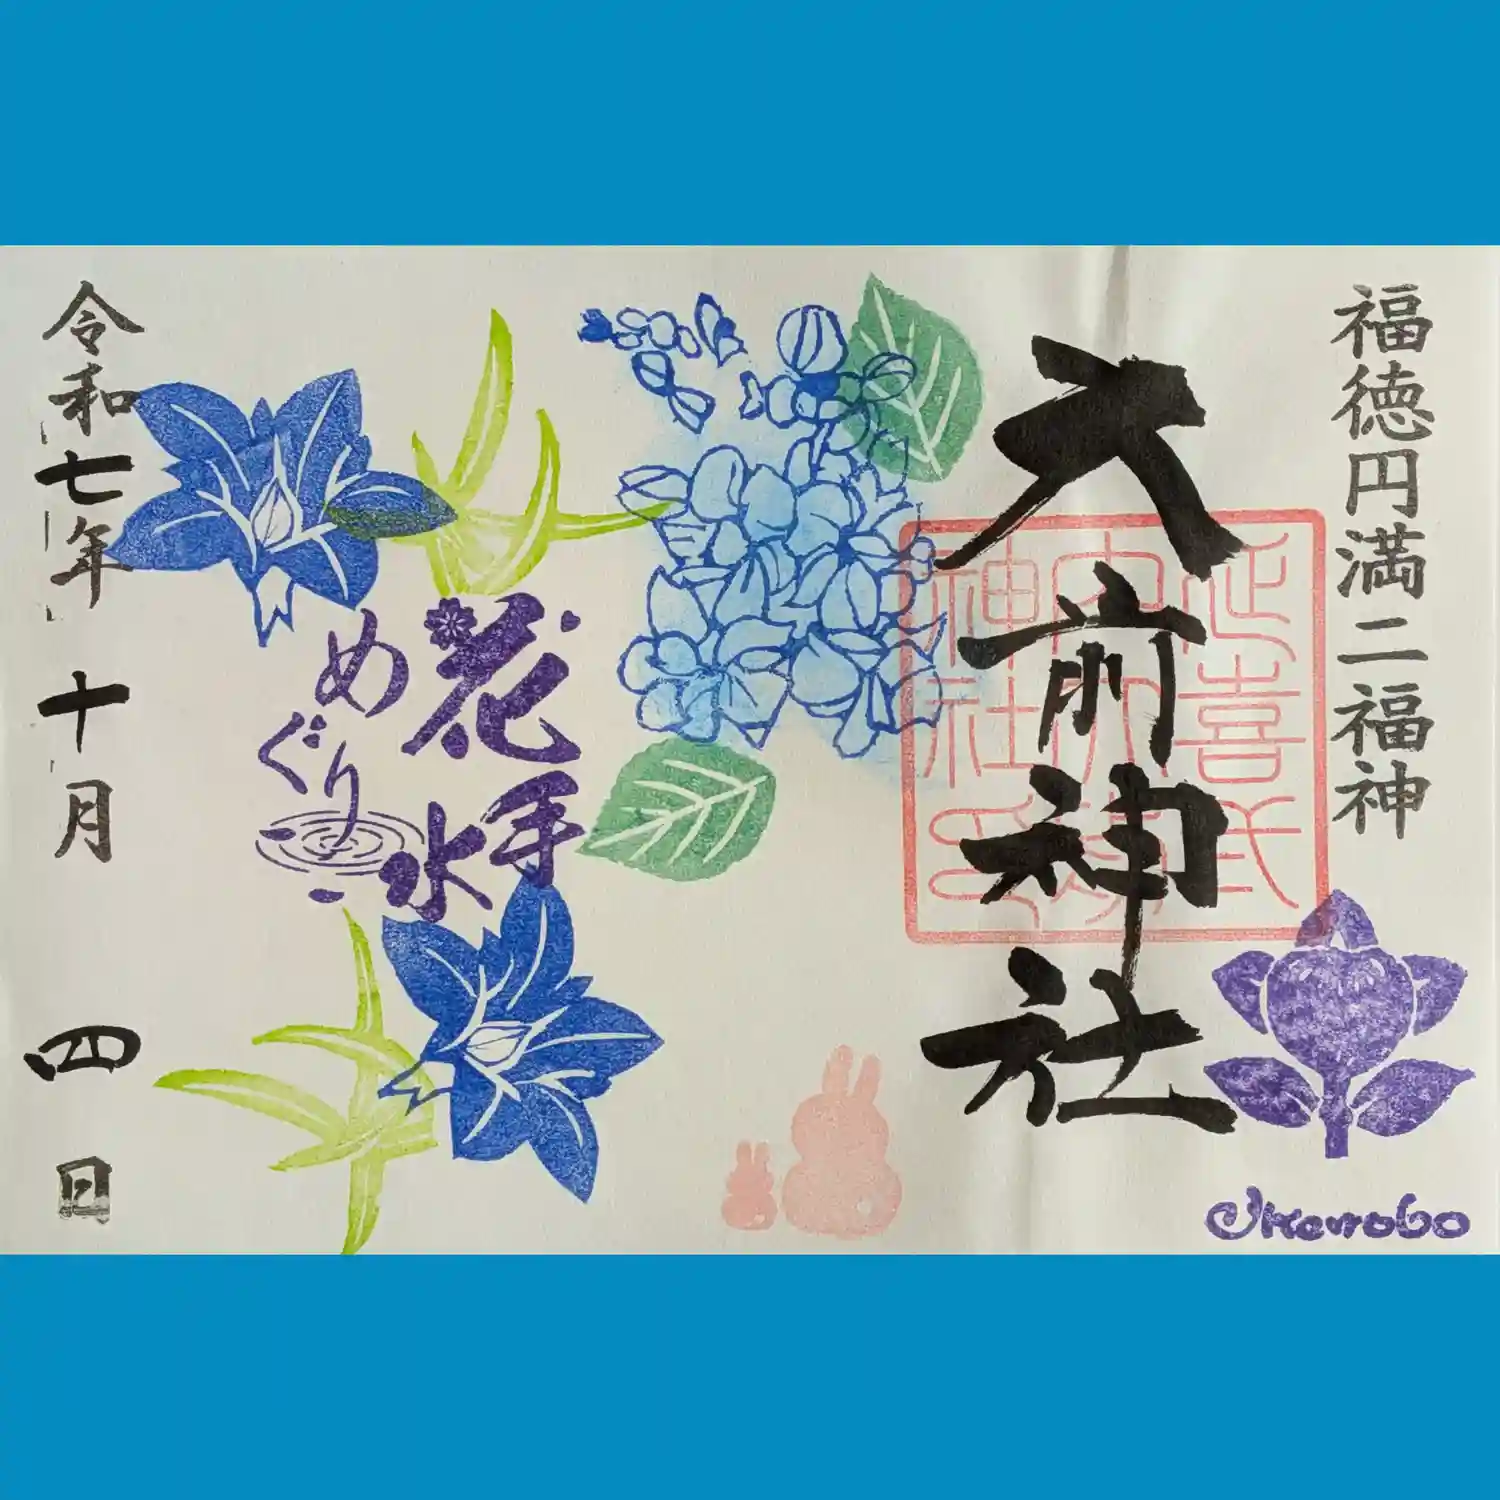 福徳円満二福神
大前神社
延喜式
内大前
神社印
花手水
めぐり
令和七年 十月 四日